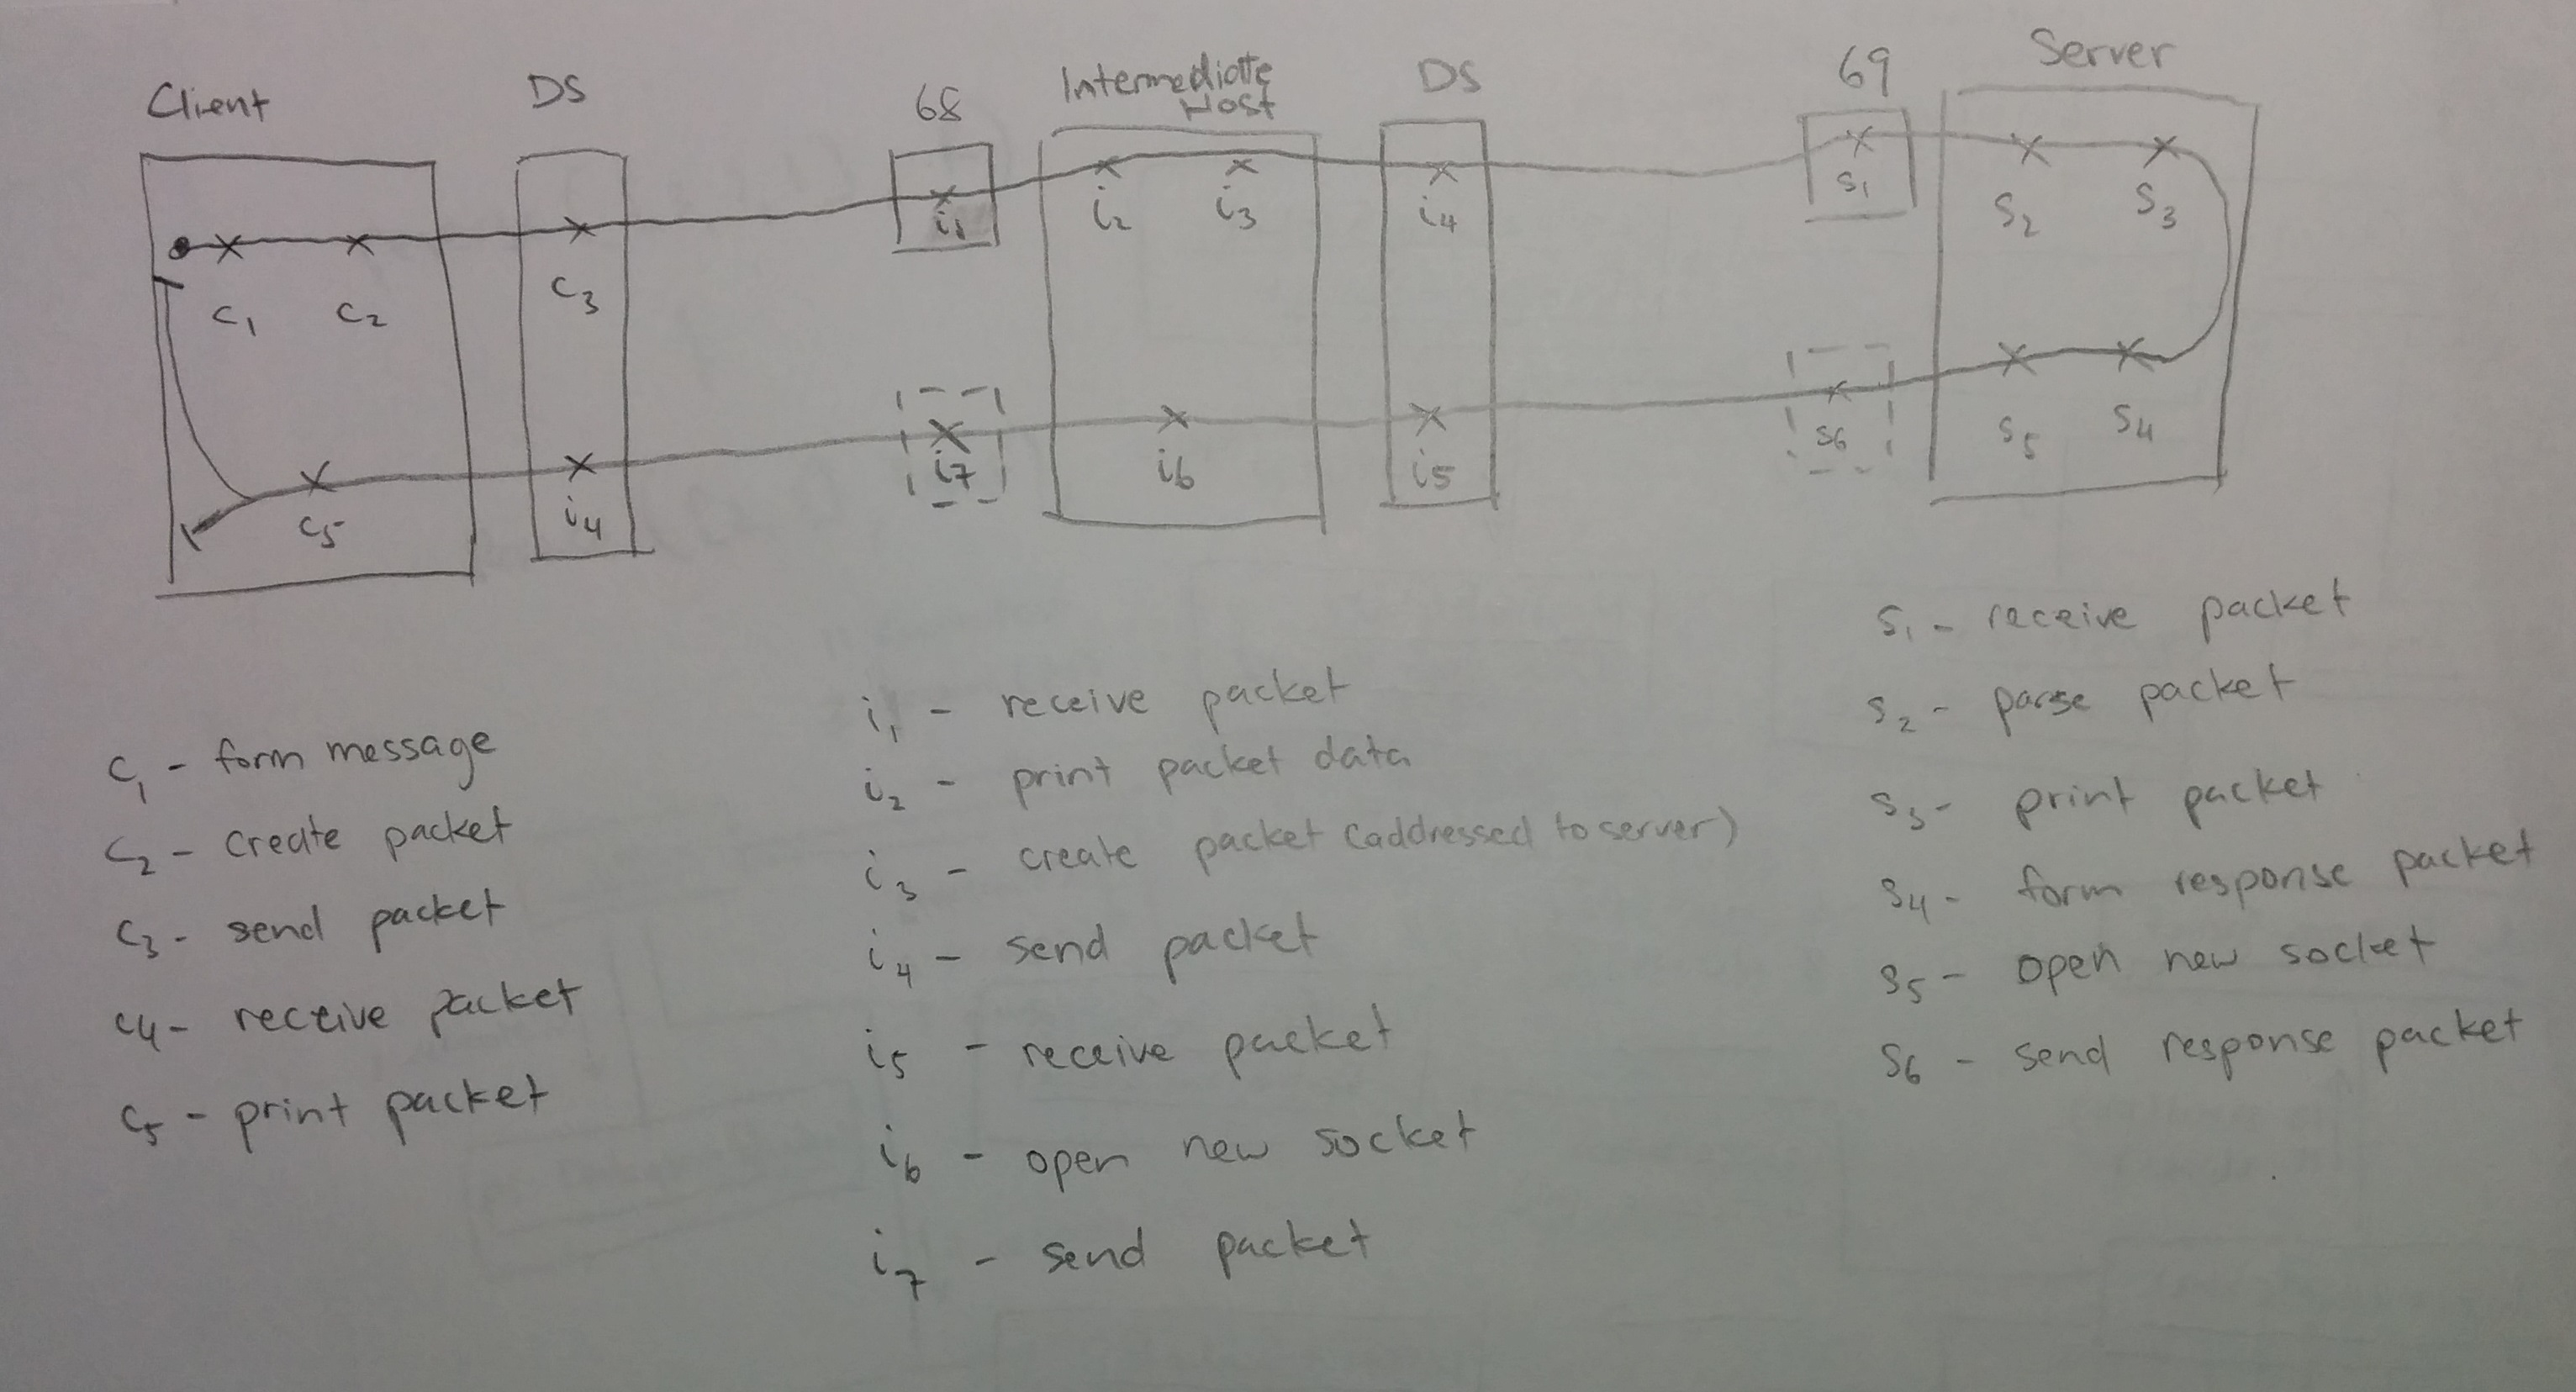 Client
DS
68
Intermediate
Host
DS
69
Server
c1
c2
c3
i1
i2
i3
i4
s1
s2
s3
c5
i4
i7
i6
i5
s6
s5
s4
c1 - form message
c2 - create packet
c3 - send packet
c4 - receive packet
c5 - print packet
i1 - receive packet
i2 - print packet data
i3 - create packet (addressed to server)
i4 - send packet
i5 - receive packet
i6 - open new socket
i7 - send packet
s1 - receive packet
s2 - parse packet
s3 - print packet
s4 - form response packet
s5 - open new socket
s6 - send response packet